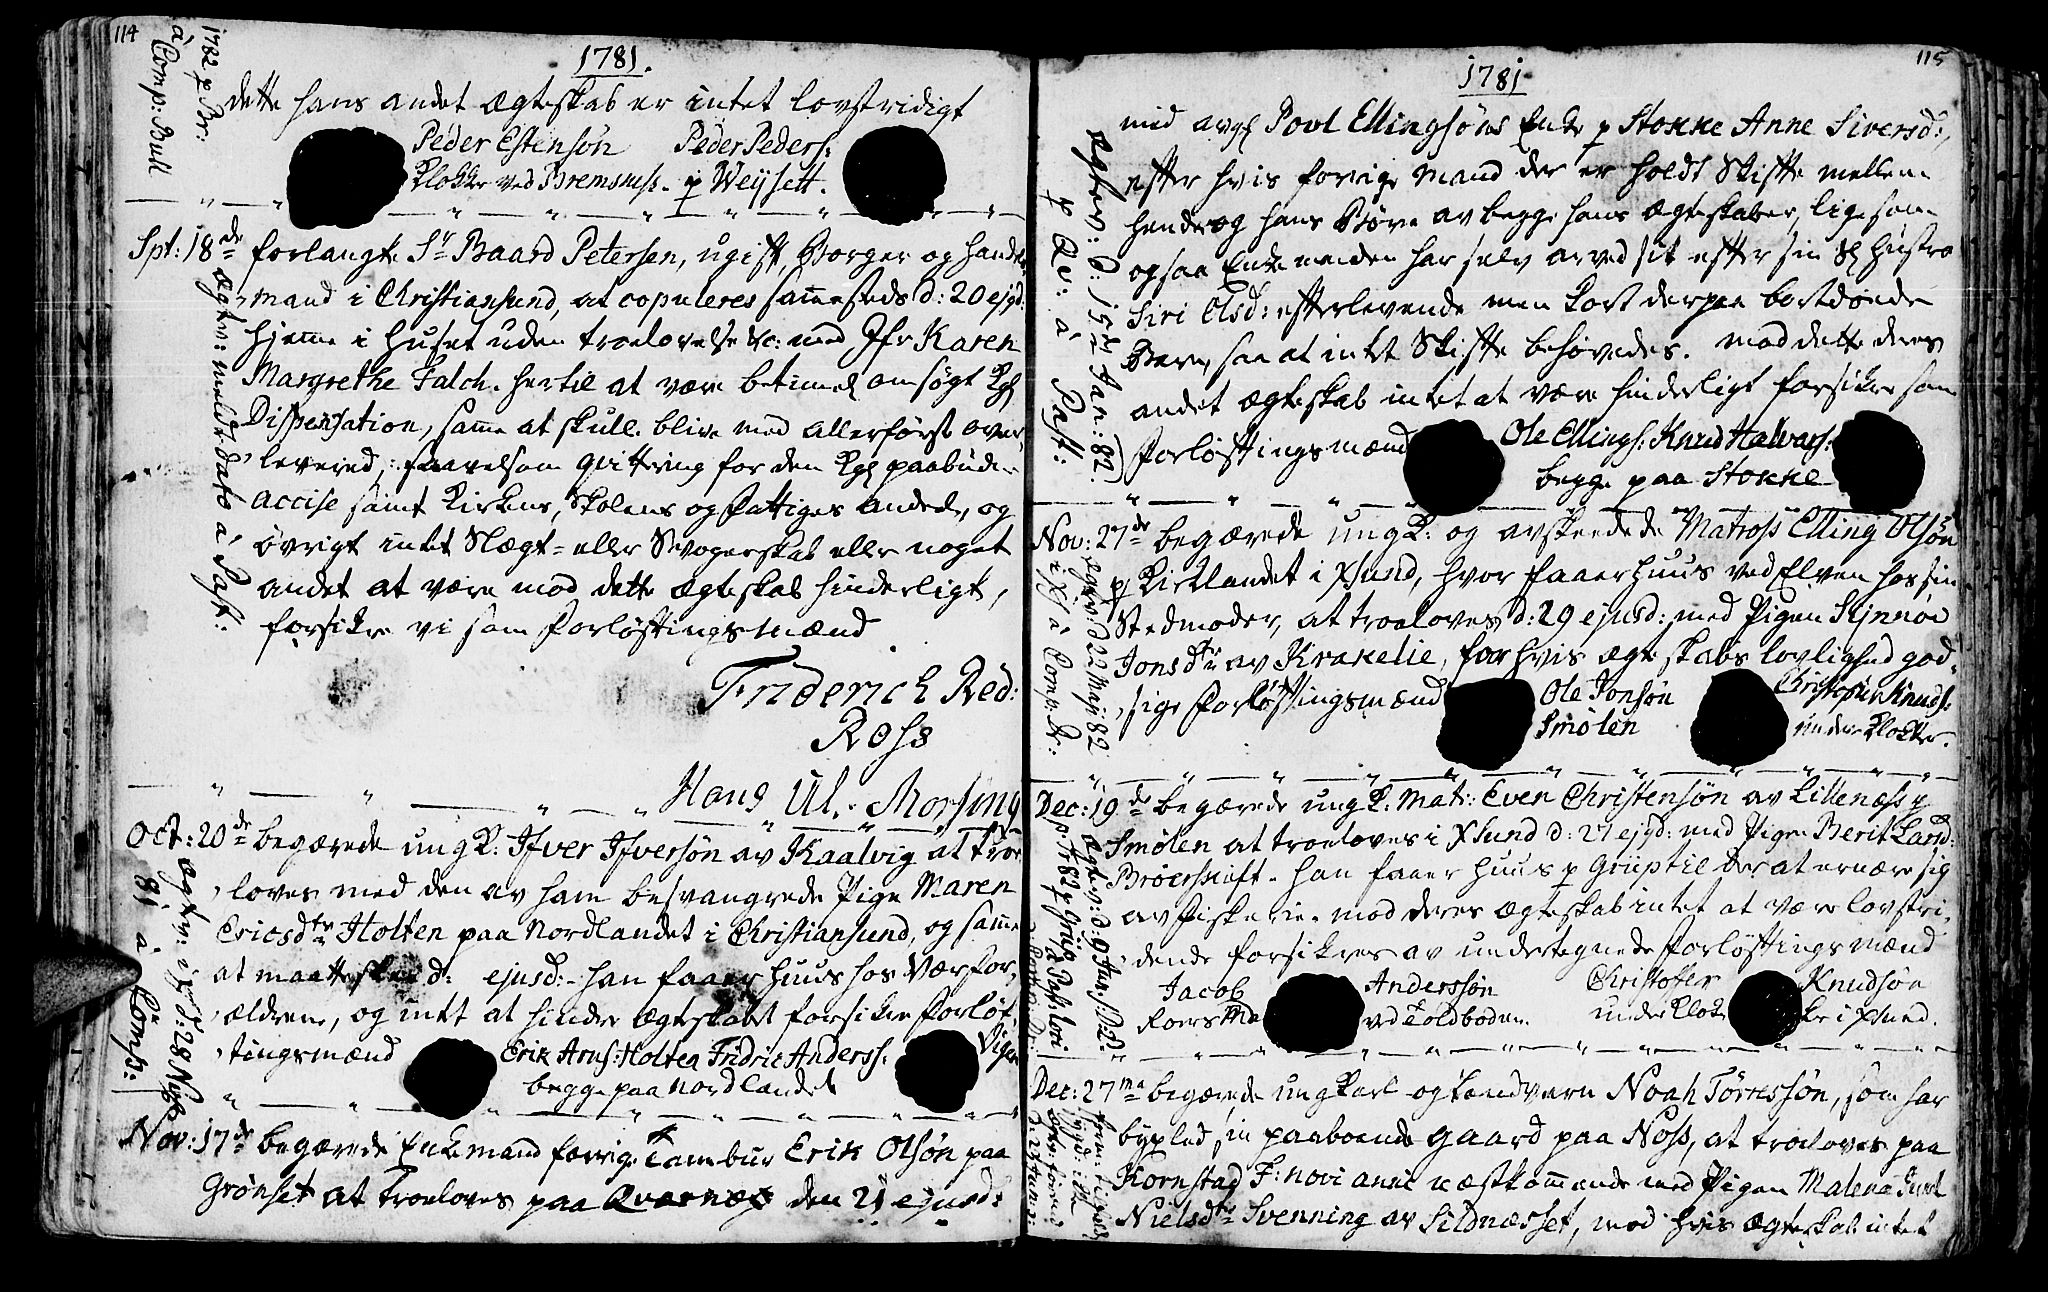 114
1781.
1782 p Br:
á Comp: Bull
dette hans andet Ægteskab er intet lovstridigt
Peder Estensøn Peder Peders:
Klokker ved Bremsness. p Weysett.
Spt: 18de forlangte Sr Baard Petersen, ugift, Borger og Handels
mand i Christiansund, at copuleres sammesteds d: 20 ejgd:
hjemme i Huset uden troelovelse &c: med Jfr Karen
Margrethe Falch. hertil at være betimel ansøgt Kgl
Dispensation, samme at skulle blive med allerførst over,
levered, saavelsom qvittering for den Kgl paabudne
accise samt Kirkens, Skolens og Fattiges Andeele, og
øvrigt intet Slægt= eller Svogerskab eller noget
andet at være mod dette Ægteskab hinderligt,
forsikre vi som Forløftingsmænd
Ægtev: meldte dato á Past:
Friderich Red:
Ross
Hans Ul. Morsing
Oct: 20de begærede ungK: Ifver Ifversøn av Kaalvig at troe
loves med den av ham besvangrede Pige Maren
Ericsdtr Holten paa Nordlandet i Christiansund, og samme
at maatte skee d: ejusd: han faaer huus hos Værfor,
ældrene, og intet at hindre Ægteskabet forsikre Forløf,
tingsmænd Erik Arns: Holten Fridric Anderss: Viger
begge paa Nordlandet
Ægtev: i d: 28 Nyss
81 á Cons:
Nov: 17de begærede Enkemand forrige Tambur Erik Olsøn paa
Grønset at troeloves paa Qvernæs den 21 ejusd:
115
1781
med avgl Povl Ellingsøns Enke p Stokke Anne Siversd:,
efter hvis forrige Mand der er holdt Skifte mellem
hende og hans Børn av begge hans Ægteskaber, ligesom
ogsaa Enkemanden har selv arved sit efter sin Sl Hustro
Siri Olsd: efterlevende men kort derpaa bortdøende
Barn, saa at intet Skifte behøvedes. mod dette deres
andet Ægteskab intet at være hinderligt forsikre som
Forløftingsmænd Ole Ellings: Knud Halvors:
begge paa Stokke
Ægtev: d: 15de Jan: 82.
p Qv: á Past:
Nov: 27de begærede ungK: og avskeedede Matross Elling Olsøn
p Kirklandet i Xsund, hvor faaer huus ved Elven hos sin
Stedmoder, at troeloves d: 29 ejusd: med Pigen Synnøe
Jonsdtr av Krakelie, for hvis Ægteskabs lovlighed god,
sige Forløftingsmænd Ole Jonsøn Christopher Knuds:
Smølen underklokker.
Ægtev: d 22 Maj: 82
á Comp: Br:
Dec: 19de begærede ungK: Mat: Even Christensøn av Lillenæss p
Smølen at troeloves i Xsund d: 27 ejgd: med Pigen Berit Larsd:
Brøerskift. han faaer huus p Grip til der at ernære sig
av fiskerie. mod deres Ægteskab intet at være lovstri,
dende forsikres av undertegnede Forløftingsmænd
Jacob Anderssøn Christoffer Knudsøn
ved Toldboden underklokker i Xsund.
Dec: 27ma begærede ungkarl og Landværn Noah Tørressøn, som har
byxled sin paaboende gaard paa Noss, at troeloves paa
Kornstad F: novi anni næstkommende med Pigen Malena Juul
Nielsdtr Svenning av Sildnæsset, mod hvis Ægteskab intet